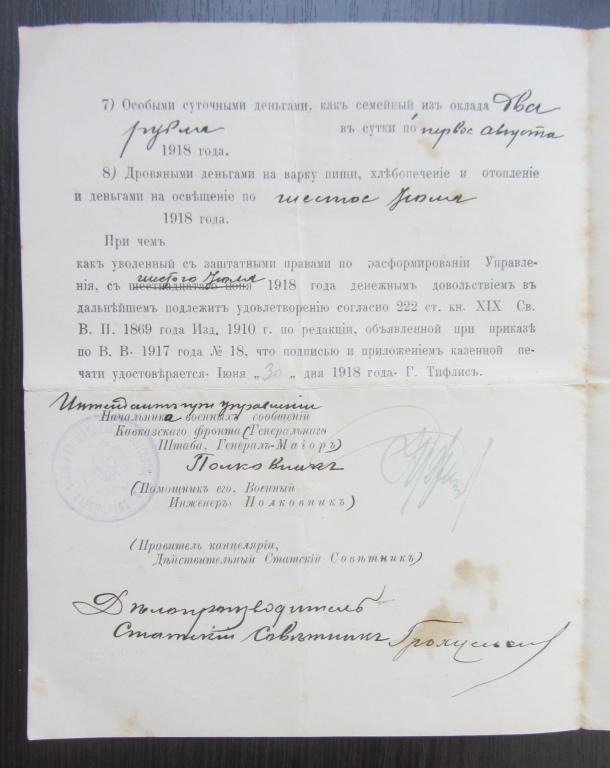 7) Особыми суточными деньгами, какъ семейный изъ оклада два
рубля въ сутки по первое августа
1918 года.
8) Дровяными деньгами на варку пищи, хлѣбопеченіе и отопленіе
и деньгами на освѣщеніе по шестое Іюля
1918 года.
При чемъ
какъ уволенный съ заштатными правами по расформированіи Управле-
шестого Іюля
нія, съ шестнадцатаго іюня 1918 года денежнымъ довольствіемъ въ
дальнѣйшемъ подлежитъ удовлетворенію согласно 222 ст. кн. XIX Св.
В. П. 1869 года Изд. 1910 г. по редакціи, объявленной при приказѣ
по В. В. 1917 года № 18, что подписью и приложеніемъ казенной пе-
чати удостовѣряется. Іюня „30„ дня 1918 года. Г. Тифлисъ.
Интендантъ при управленіи
Начальника военныхъ сообщеній
Кавказскаго фронта (Генеральнаго
Штаба, Генералъ-Маіоръ)
Полковникъ
(Помощникъ его, Военный
Инженеръ, Полковникъ)
(Правитель канцеляріи,
Дѣйствительный Статскій Совѣтникъ)
Дѣлопроизводитель
Статскій Совѣтникъ